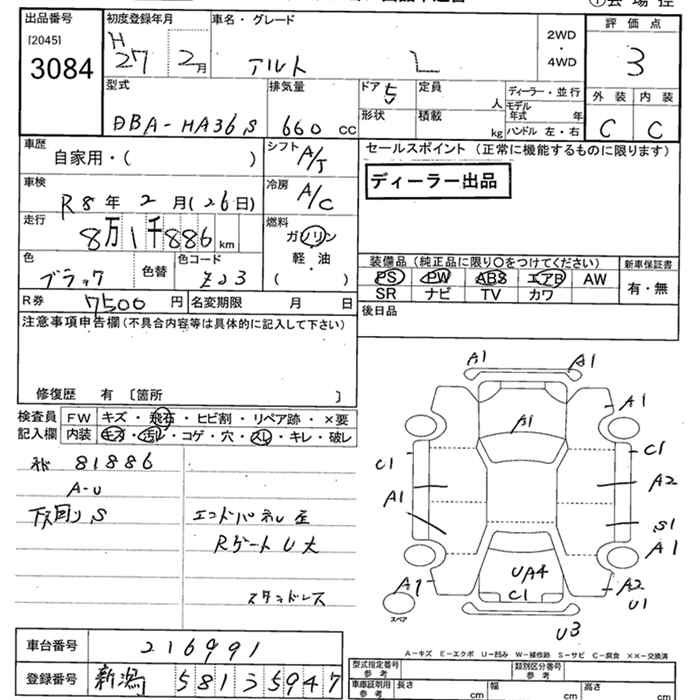 出品番号
[2045]
3084
初度登録年月
H
27 2月
車名・グレード
アルト L
2WD
・
4WD
評価点
3
型式
DBA-HA36S
排気量
660 cc
ドア 5
形状
定員 人
積載 kg
ディーラー・並行
モデル年式 年
ハンドル 左・右
外装 内装
C C
車歴
自家用・( )
シフト A/T
車検
R8年 2月(26日)
冷房 A/C
走行
8万1千886km
燃料
ガソリン
軽・油
( )
色
ブラック
色替
色コード
ZJ3
R券 7500円
名変期限 月 日
セールスポイント(正常に機能するものに限ります)
ディーラー出品
装備品(純正品に限り○をつけてください)
PS PW ABS エアB AW
SR ナビ TV カワ
新車保証書
有・無
後日品
注意事項申告欄(不具合内容等は具体的に記入して下さい)
修復歴 有 〔箇所 〕
検査員
記入欄
FW キズ・飛石・ヒビ割・リペア跡・×要
内装 キズ・汚レ・コゲ・穴・スレ・キレ・破レ
81886
A-U
下回りS
エンドパネル歪
RゲートU大
スタッドレス
A1 A1
A1
A1
C1 C1
A1 A2
S1
A1
A1
UA4
C1
A2
U1
U3
スペア
A-キズ E-エクボ U-凹み W-補修跡 S-サビ C-腐食 XX-交換済
車台番号 216991
登録番号 新潟 581 う 5947
型式指定番号
参考
類別区分番号
参考
車庫証明用
参考
長さ cm
幅 cm
高さ cm